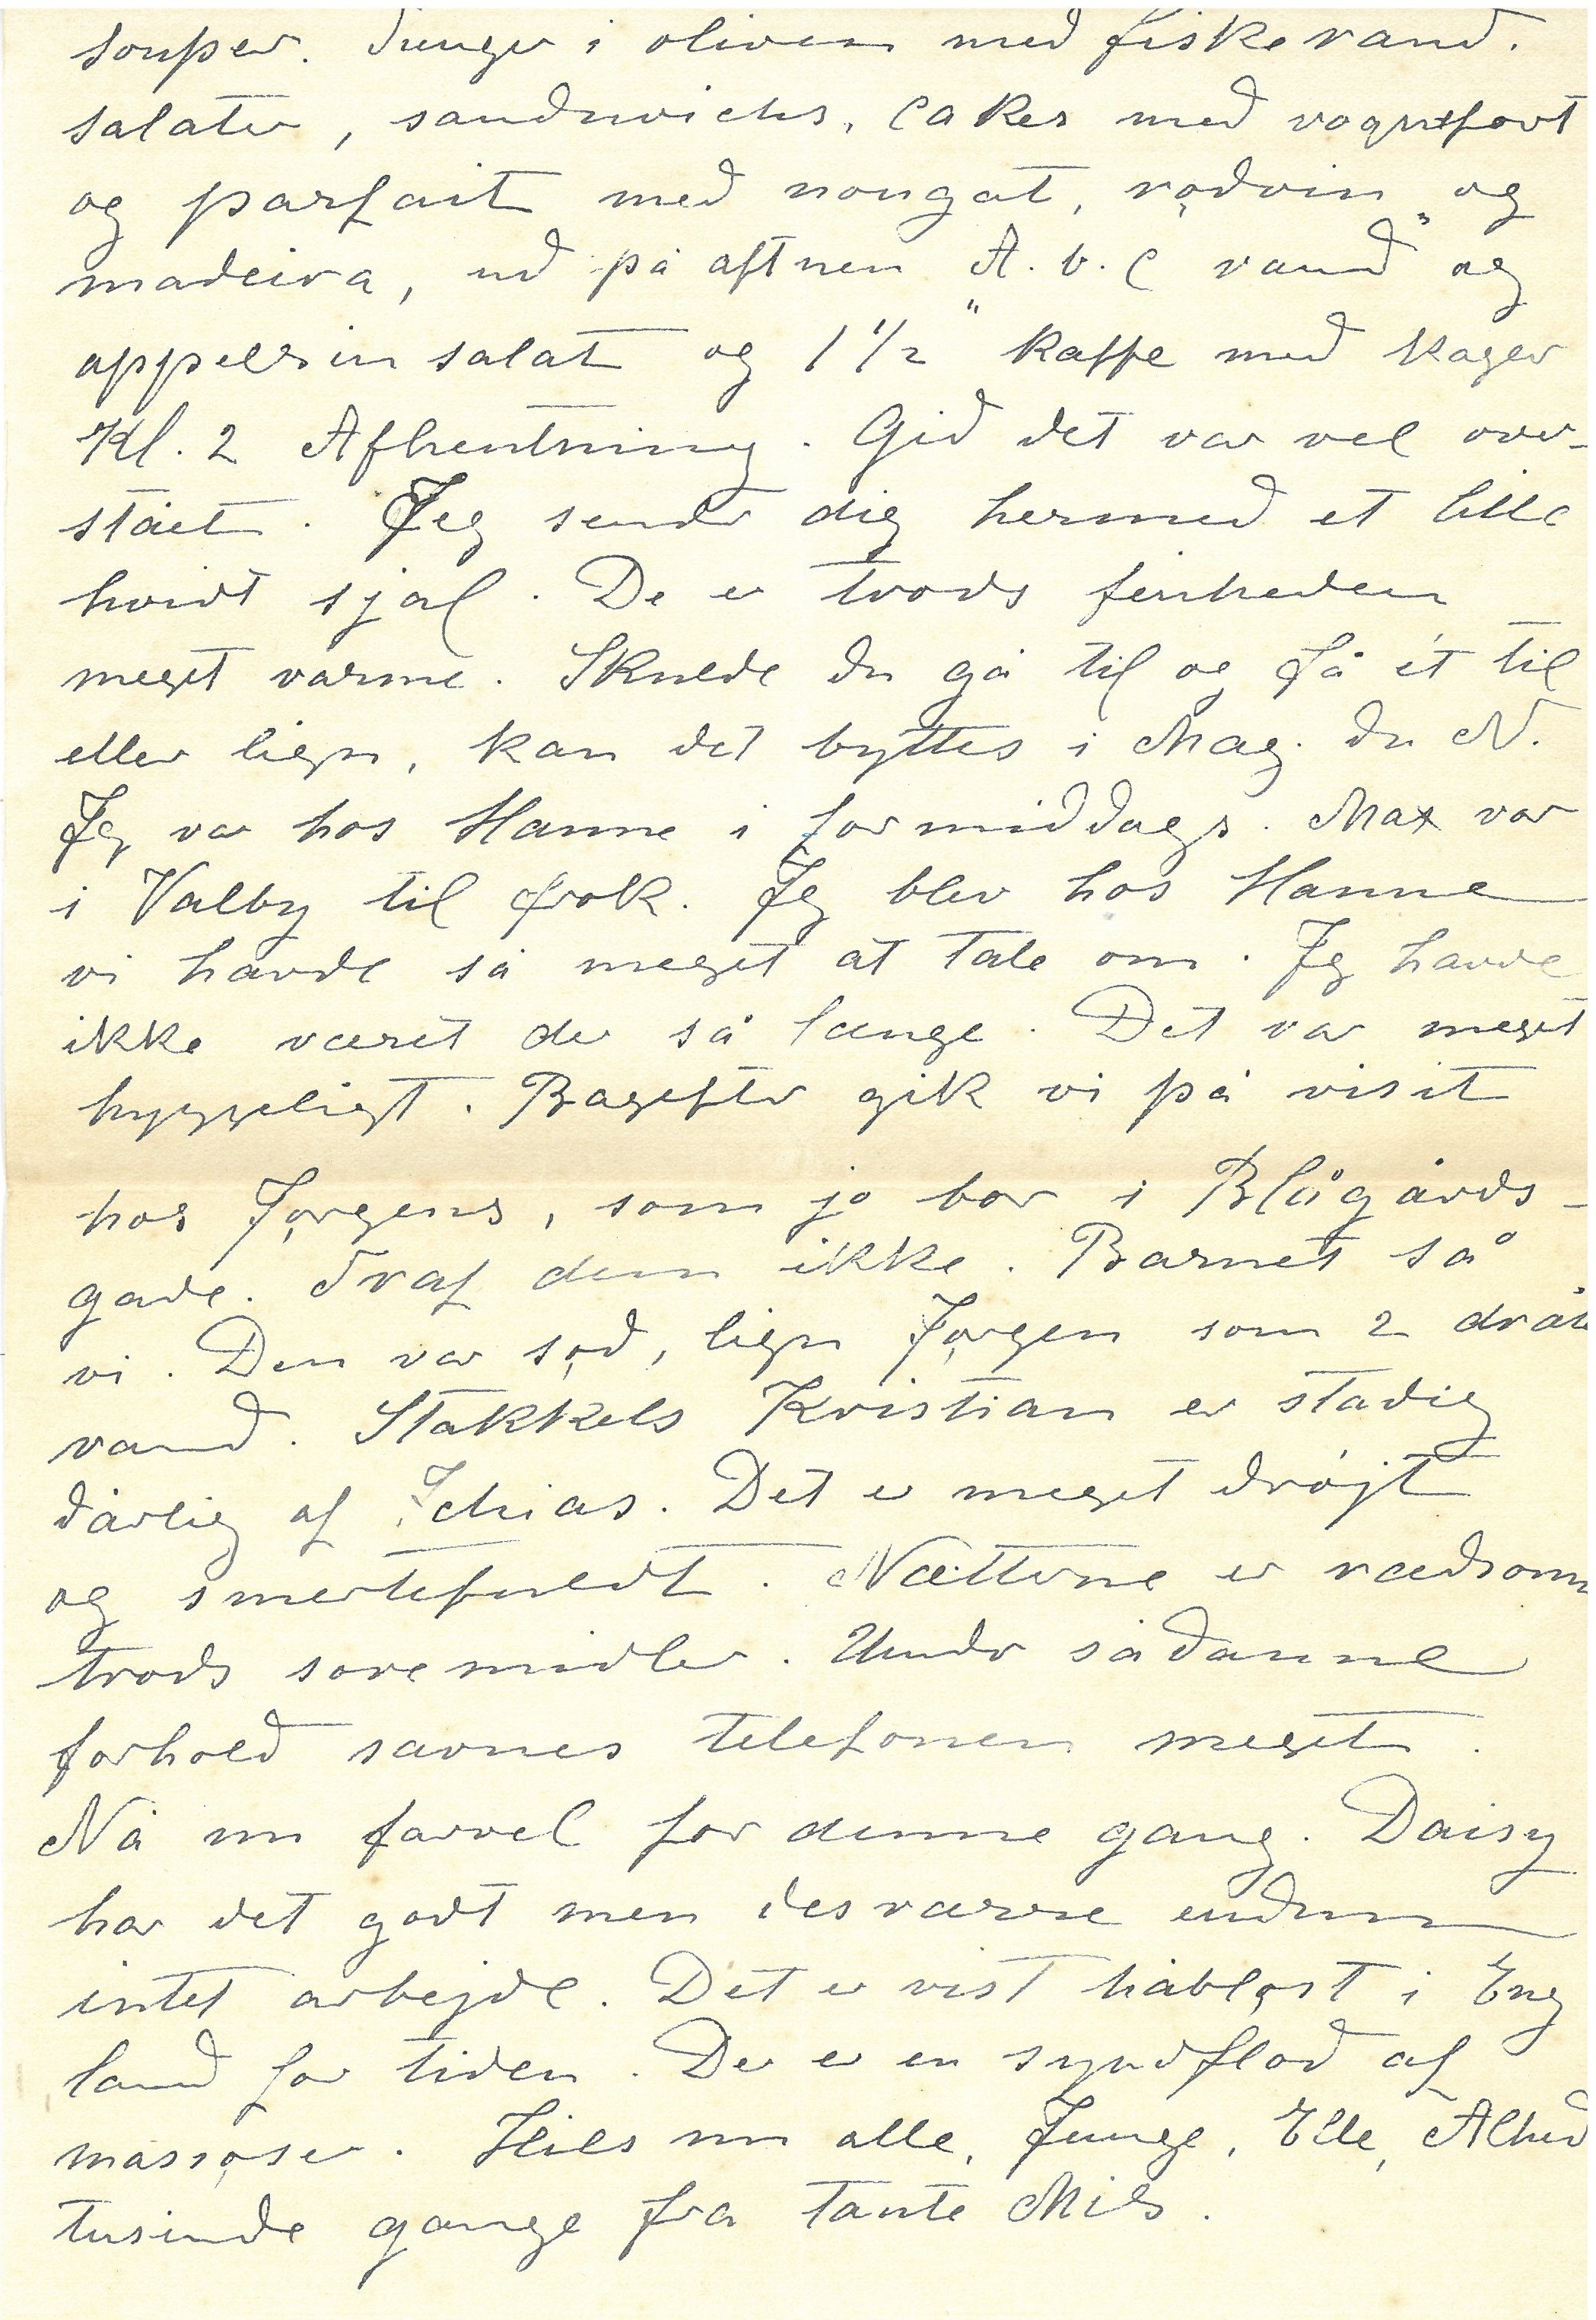 souper. Tunger i oliven med fiskevand.
salater, sandwichs, Cakes med roquefort
og parfait med nougat, rødvin og
madeira, ud på aftnen "A.b.C vand" og
appelsin salat og 1 1/2 kaffe med kager
Kl. 2 Afhentning. Gid det var vel over-
stået. Jeg sender dig hermed et lille
hvidt sjal. De er trods finheden
meget varme. Skulde du gå til og få ét til
eller lign, kan det byttes i Mag. du N.
Jeg var hos Hanne i formiddags. Max var
i Valby til frok. Jeg blev hos Hanne
vi havde så meget at tale om. Jeg havde
ikke været der så længe. Det var meget
hyggeligt. Bagefter gik vi på visit
hos Jørgens, som jo bor i Blågårds-
gade. Traf dem ikke. Barnet så
vi. Den var sød, lign Jørgen som 2 dråb
vand. Stakkels Kristian er stadig
dårlig af Ichias. Det er meget drøjt
og smertefuldt. Nætterne er rædsomm
trods sovemidler. Under sådanne
forhold savnes telefonen meget.
Nå nu farvel for denne gang. Daisy
har det godt men desværre endnu
intet arbejde. Det er vist håbløst i Eng
land for tiden. Der er en syndflod af
massøser. Hils nu alle, Junge, Elle, Alhed
tusinde gange fra Tante Mis.